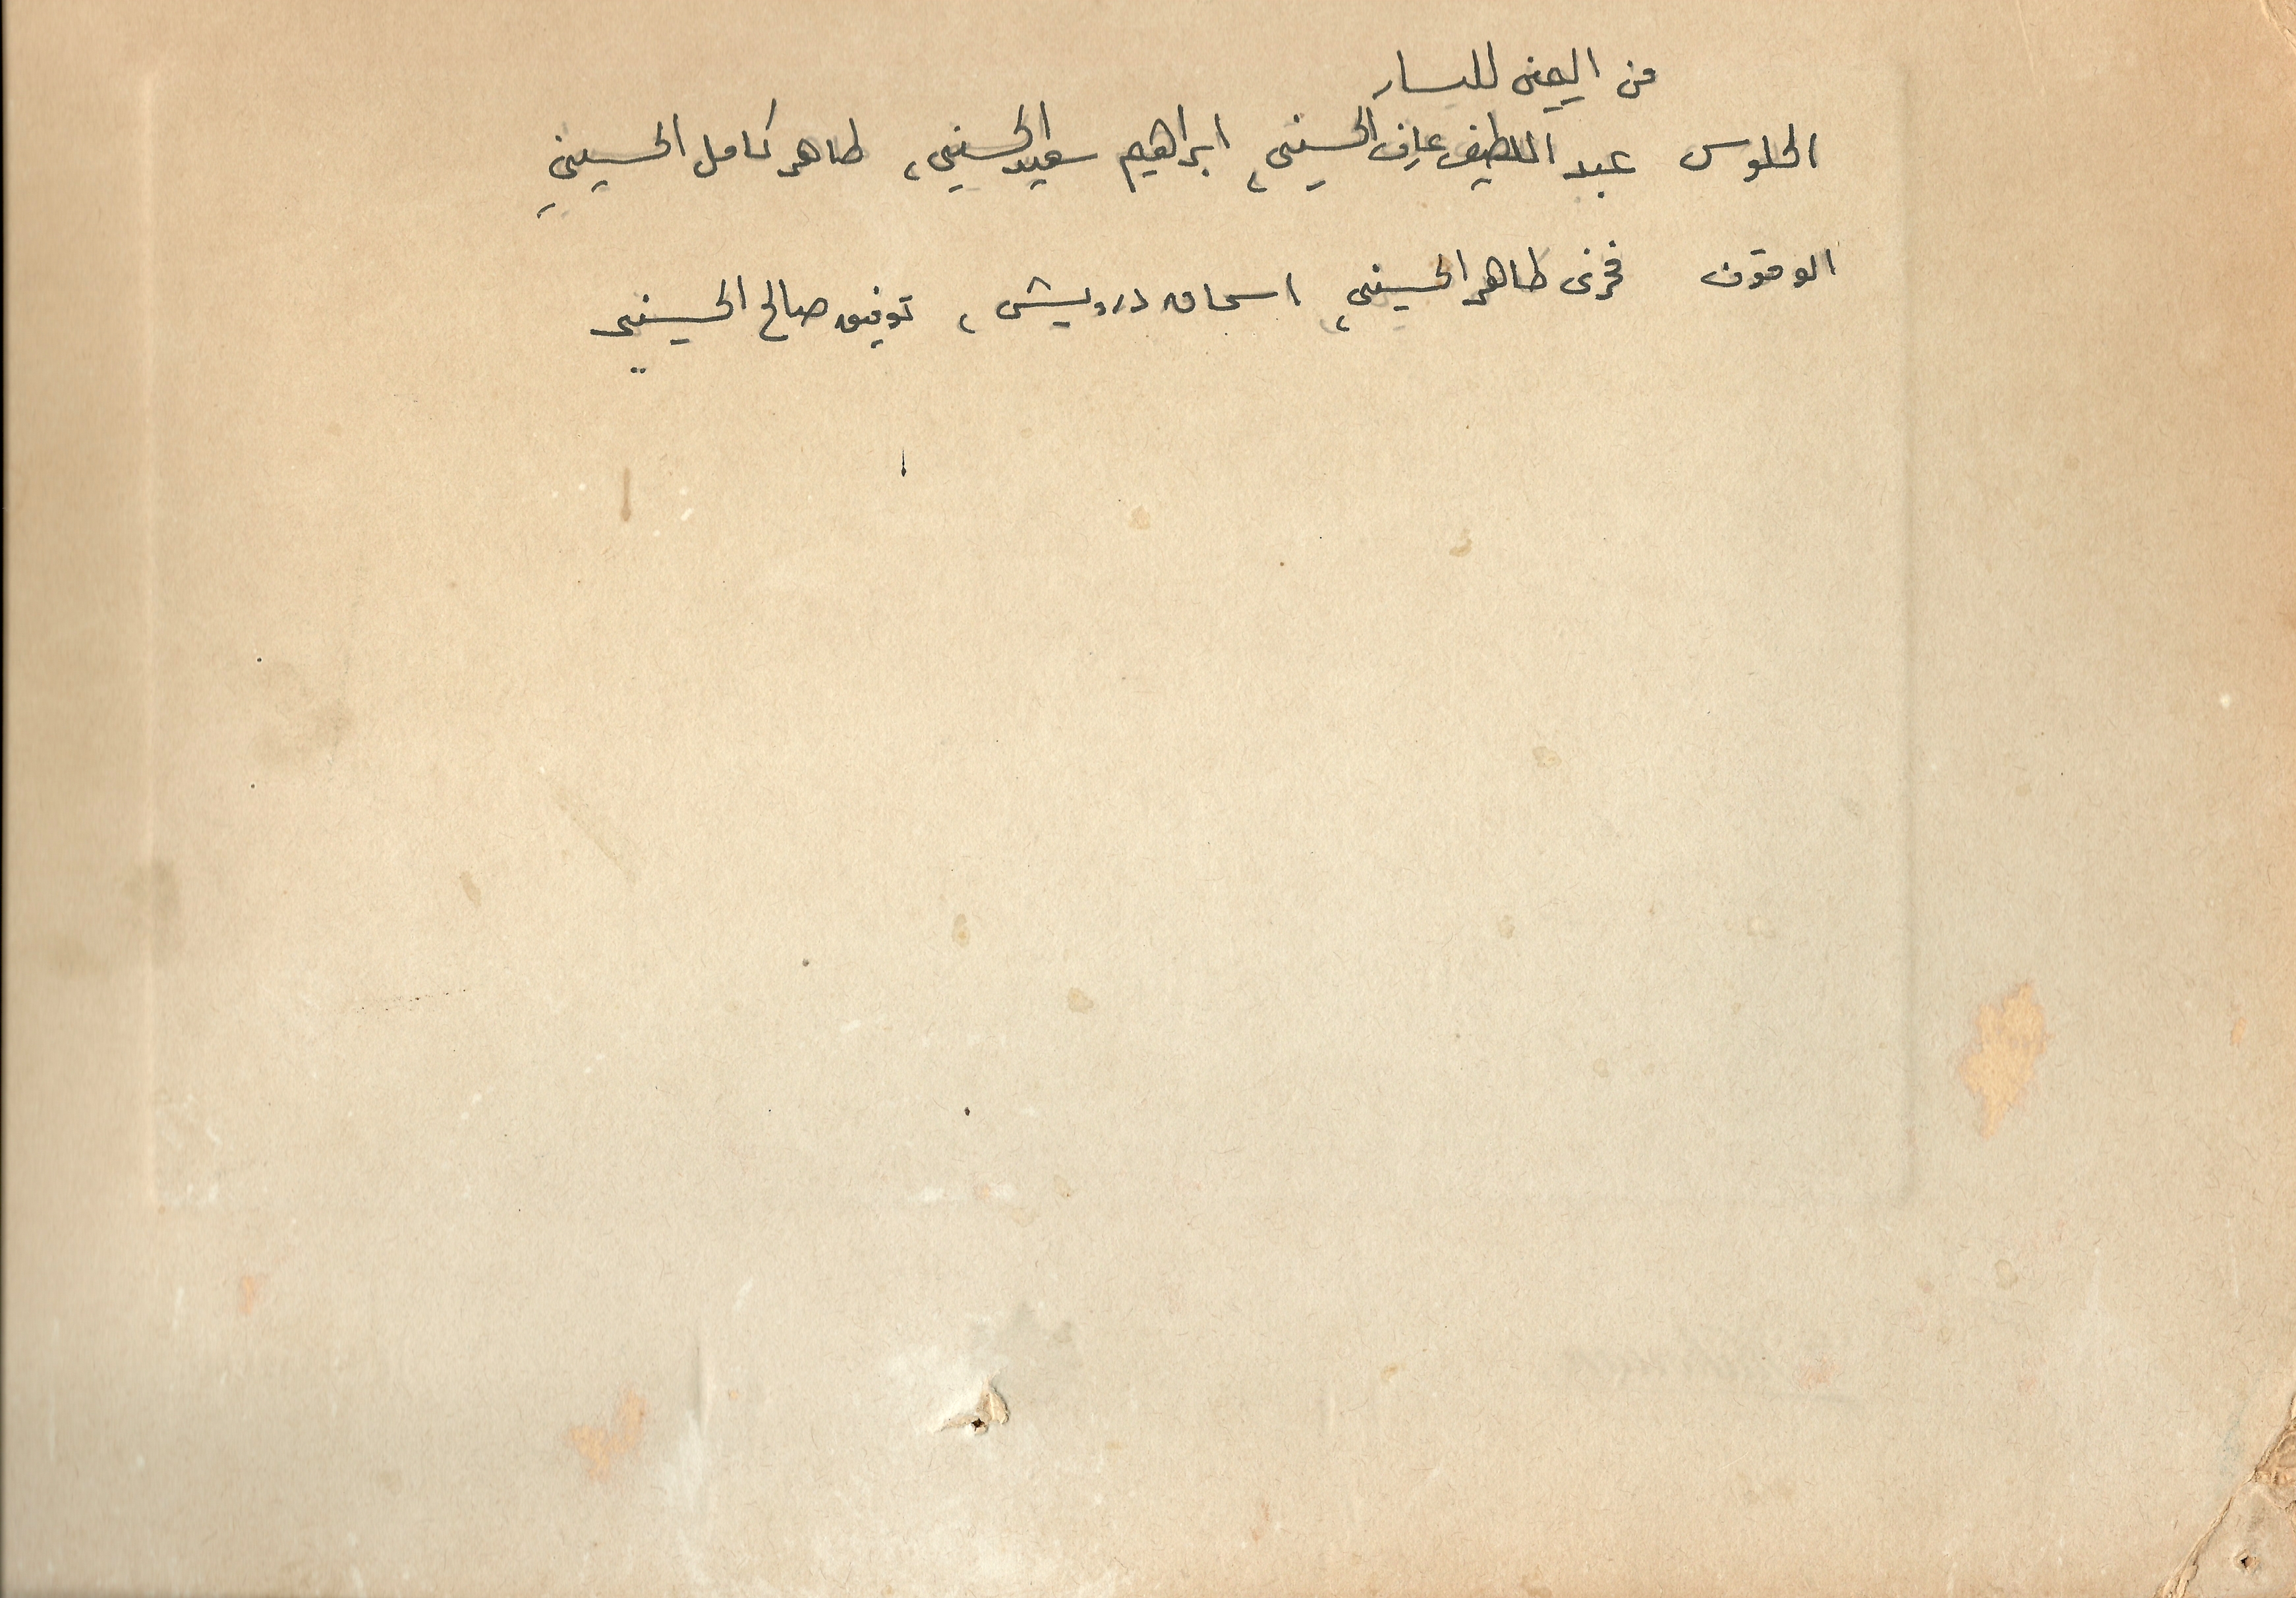 من اليمين لليسار
الجلوس عبد اللطيف عارف الحسيني، ابراهيم سعيد الحسيني، طاهر كامل الحسيني
الوقوف فخري طاهر الحسيني، اسحاق درويش، توفيق صالح الحسيني